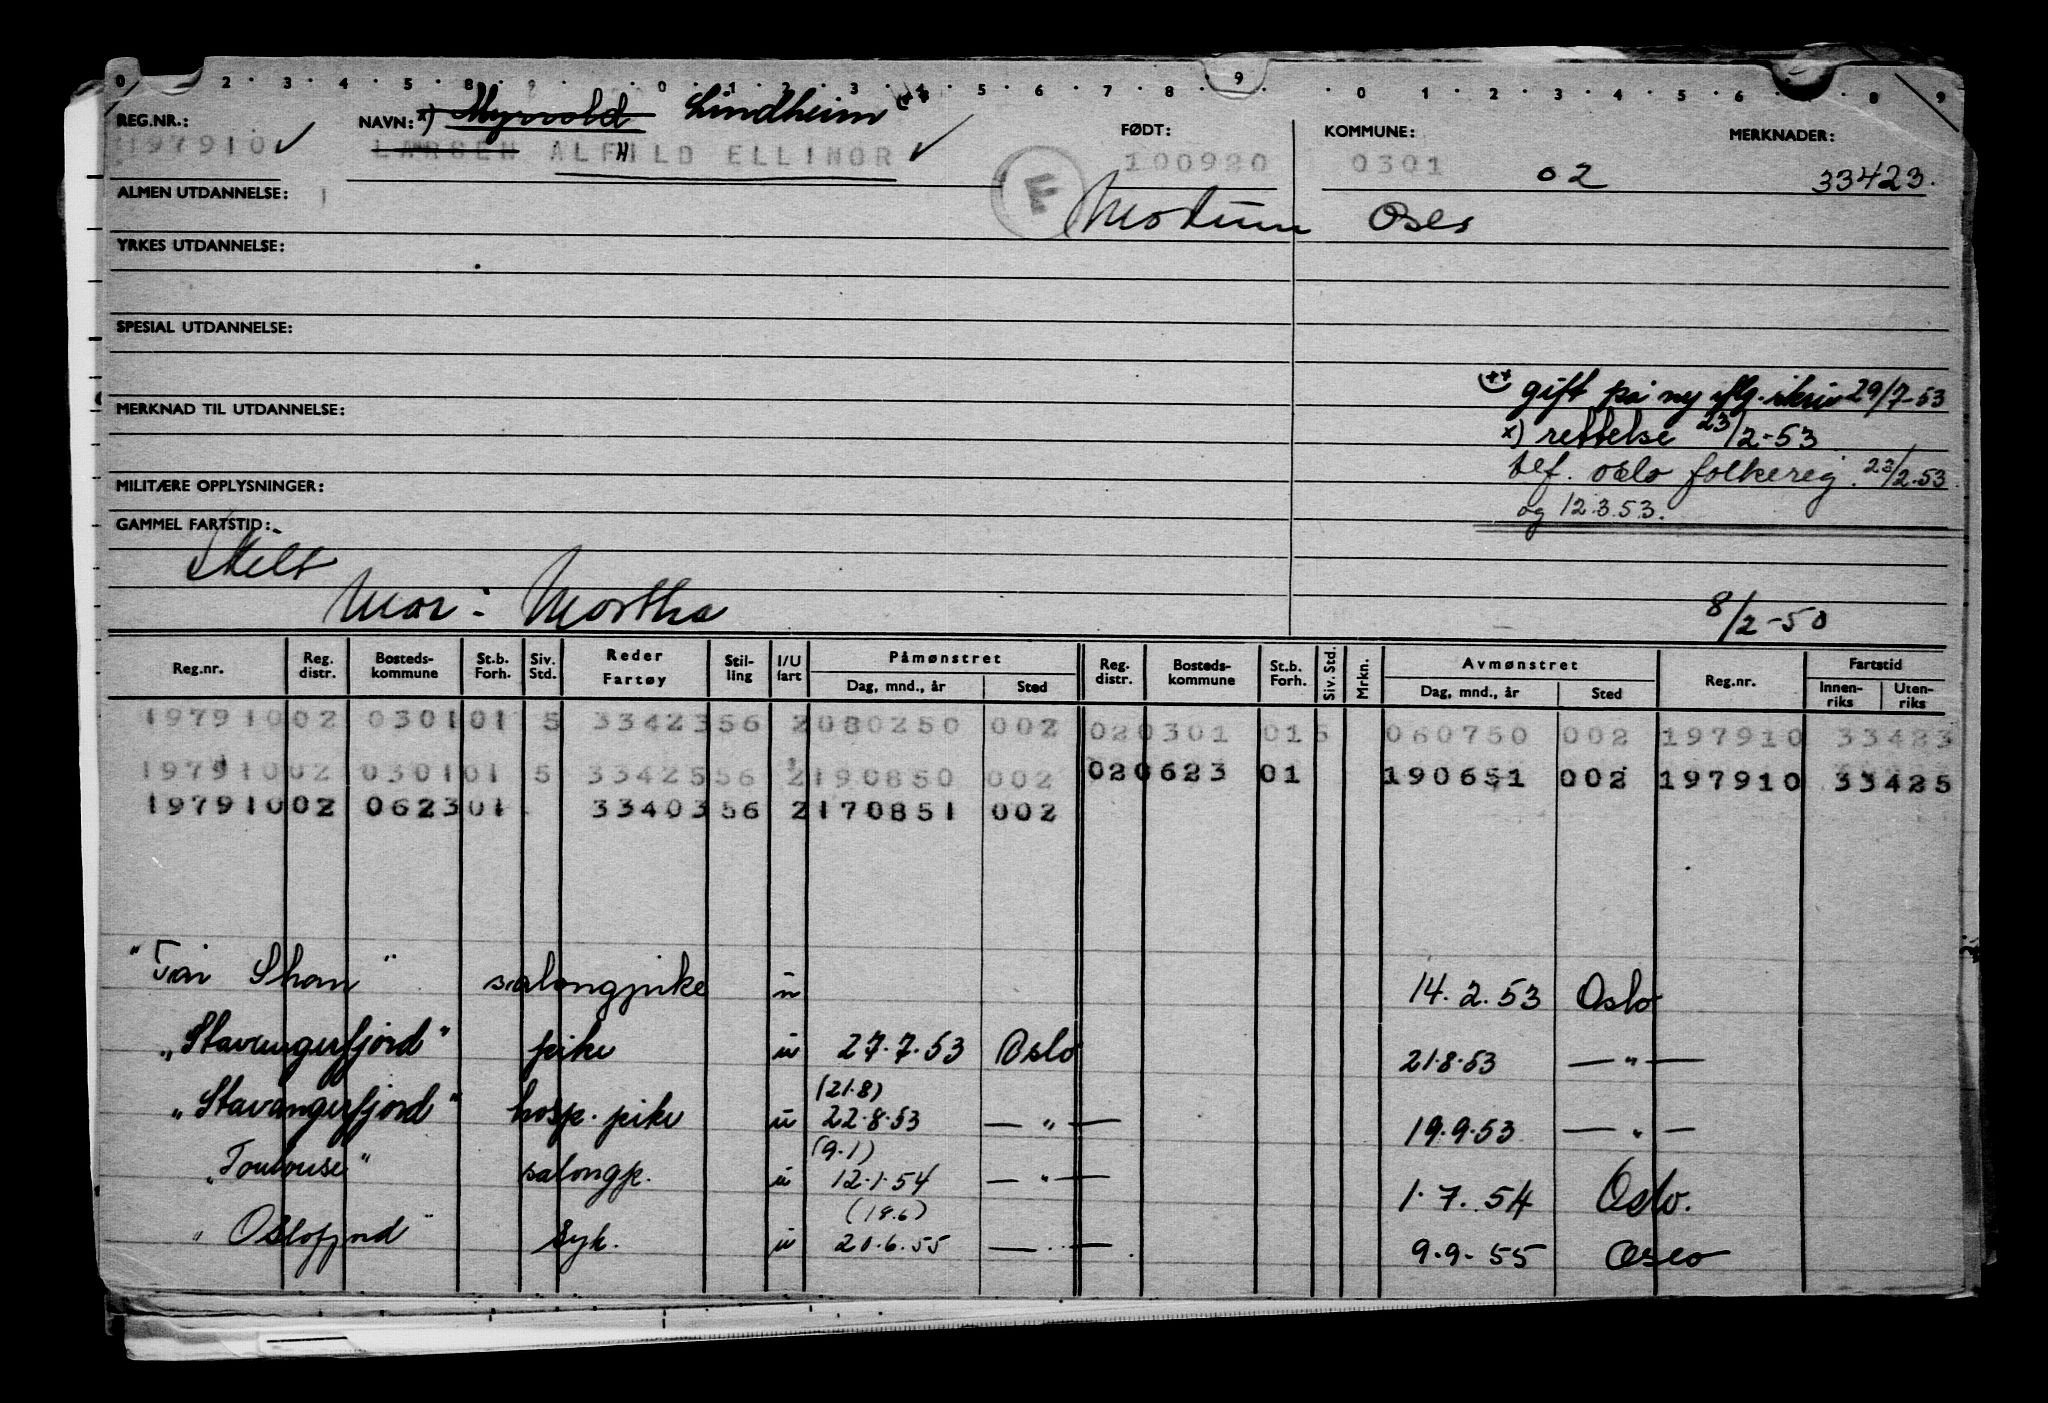 0 2 3 4 5 8 9 0 1 2 3 4 5 6 7 8 9 0 1 2 3 4 5 6 8 9
REG.NR.: NAVN: x) Myrvold Lindheim ++ FØDT: KOMMUNE: MERKNADER:
197910 ✓ LARSEN ALFHILD ELLINOR ✓ F 100920 0301 02 33423.
ALMEN UTDANNELSE: Modum Oslo
YRKES UTDANNELSE:
SPESIAL UTDANNELSE:
++ gift på ny iflg. skriv 29/7-53
MERKNAD TIL UTDANNELSE:
x) rettelse 23/2-53
tlf. oslo folkereg. 23/2.53
MILITÆRE OPPLYSNINGER:
og 12.3.53.
GAMMEL FARTSTID:
Skilt
Mor: Martha 8/2-50
Reg.nr. Reg. distr. Bosteds- kommune St.b. Forh. Siv. Std. Reder Fartøy Stil- ling I/U fart Påmønstret Dag, mnd., år Sted Reg. distr. Bosteds- kommune St.b. Forh. Siv. Std. Mrkn. Avmønstret Dag, mnd., år Sted Reg.nr. Fartstid Innen- riks Uten- riks
197910 02 0301 01 5 33423 56 2 080250 002 02 0301 01 5 060750 002 197910 33423
197910 02 0301 01 5 33425 56 2 190850 002 02 0623 01 190651 002 197910 33425
197910 02 0623 01 33403 56 2 170851 002
"Tai Shan" salongpike u 14.2.53 Oslo
"Stavangerfjord" pike u 27.7.53 Oslo 21.8.53 — " —
(21.8)
"Stavangerfjord" hosp. pike u 22.8.53 — " — 19.9.53 — " —
(9.1)
"Toulouse" salongp. u 12.1.54 — " — 1.7.54 Oslo.
(18.6)
"Oslofjord" syk. u 20.6.55 — " — 9.9-55 Oslo